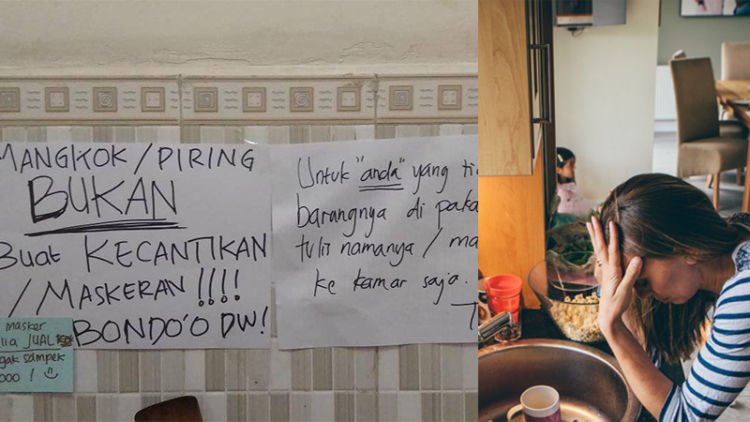 MANGKOK / PIRING
BUKAN
Buat KECANTIKAN
/ MASKERAN !!!!
BONDO'O DW!
masker
lia JUAL
gak sampek
000 !
Untuk "anda" yang ti
barangnya di paka
tulis namanya / ma
ke kamar saja.